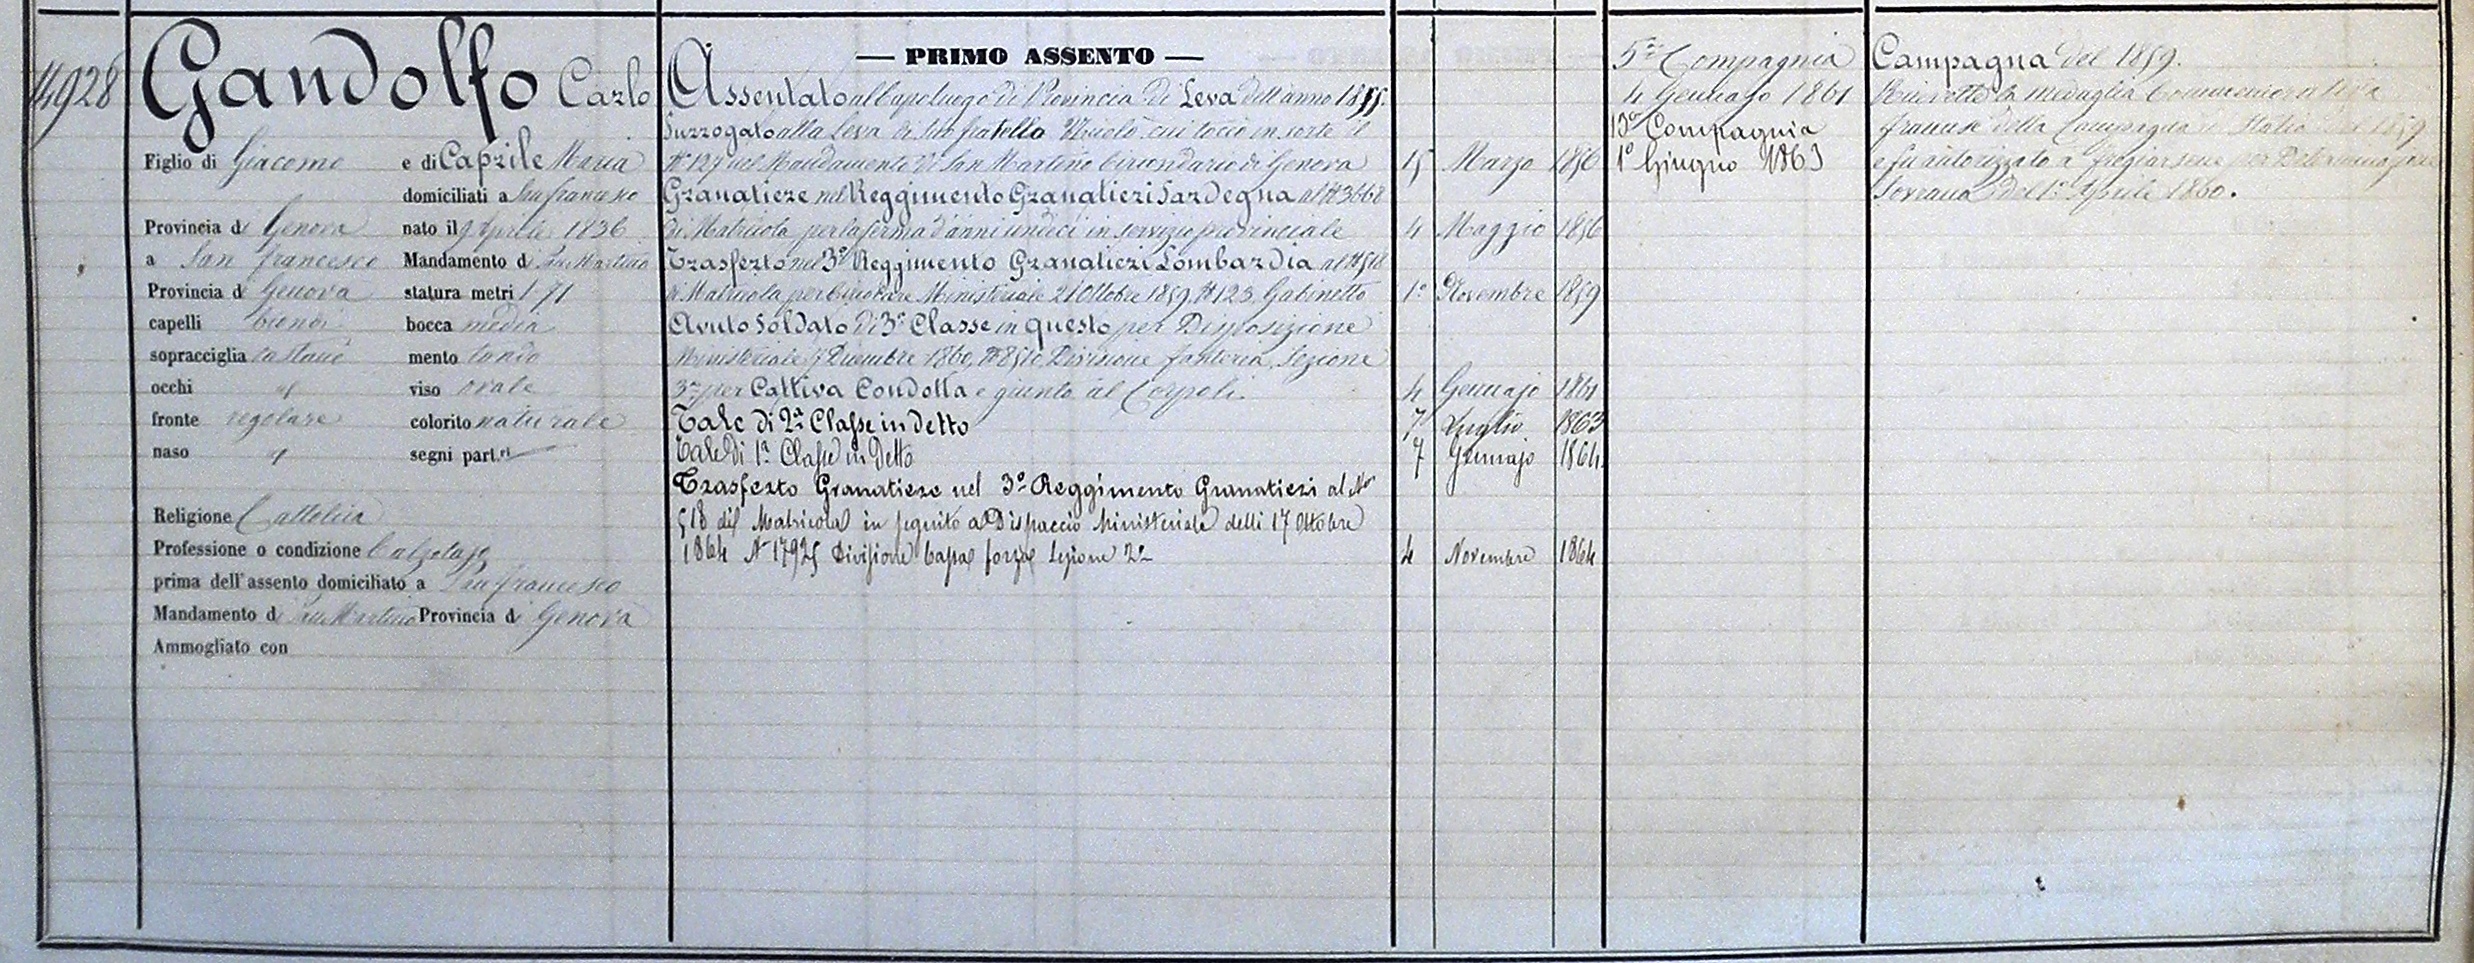 4928
Gandolfo Carlo
Figlio di Giacomo e di Caprile Maria
domiciliati a San francesco
Provincia di Genova nato il 9 Aprile 1836
a San francesco Mandamento di San Martino
Provincia di Genova statura metri 1 71
capelli biondi bocca media
sopracciglia castane mento tondo
occhi id viso ovale
fronte regolare colorito naturale
naso id segni part.ri
Religione Cattolica
Professione o condizione Calzolajo
prima dell'assento domiciliato a San francesco
Mandamento di San Martino Provincia di Genova
Ammogliato con
— PRIMO ASSENTO —
Assentato al Capoluogo di Provincia di Leva dell'anno 1855.
Surrogato alla Leva di suo fratello Nicolò cui toccò in sorte il
N° 127 nel Mandamento di San Martino Circondario di Genova 15 Marzo 1856
Granatiere nel Reggimento Granatieri Sardegna al N° 3668
di Matricola per la ferma d'anni undici in servizio provinciale 4 Maggio 1856
Trasferto nel 3° Reggimento Granatieri Lombardia al N° 518
di Matricola per Circolare Ministeriale 21 Ottobre 1859, N° 123, Gabinetto 1° Novembre 1859
Avuto Soldato di 3a Classe in questo per Disposizione
Ministeriale 7 Dicembre 1860, N° 8510 Divisione fanteria, Sezione
3a per Cattiva Condotta e giunto al Corpo li 4 Gennajo 1861
Tale di 2a Classe in detto 7 Luglio 1863
Tale di 1a Classe in detto 7 Gennajo 1864
Trasferto Granatiere nel 3° Reggimento Granatieri al No
518 di Matricola in seguito a Dispaccio Ministeriale delli 17 Ottobre
1864 N° 17925 Divisione bassa forza Sezione 2a 4 Novembre 1864
5a Compagnia
4 Gennajo 1861
13a Compagnia
1° Giugno 1863
Campagna del 1859.
Ricevette la Medaglia Commemorativa
francese della Campagna d'Italia del 1859
e fu autorizzato a fregiarsene per Determinazione
Sovrana del 1° Aprile 1860.